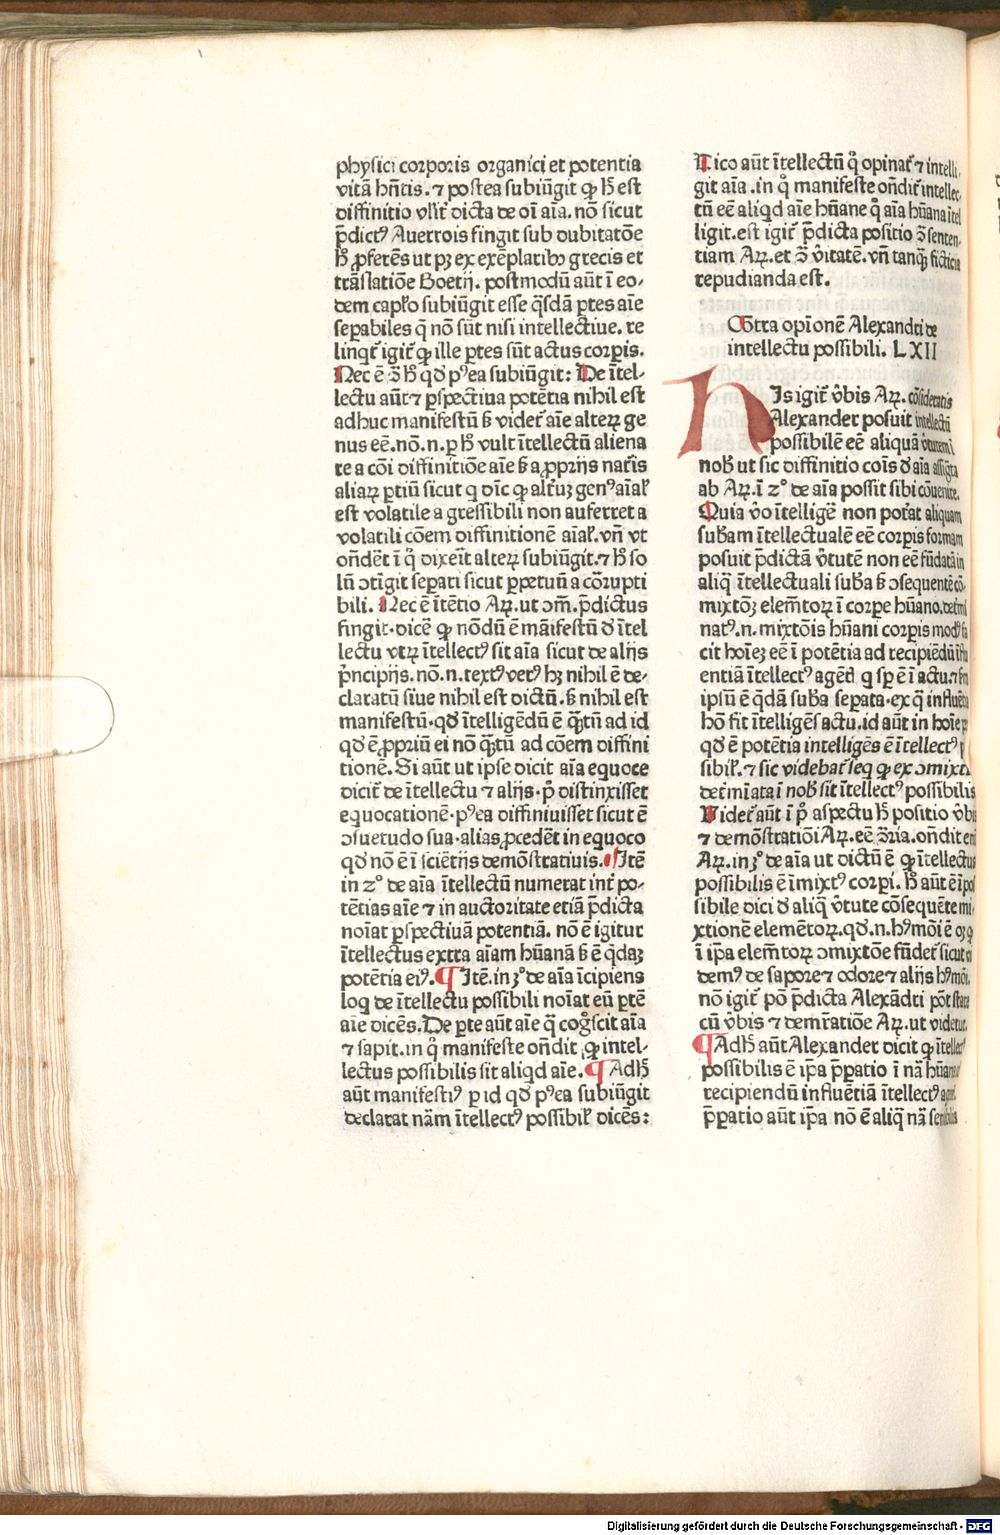 phyſici corporis organici et potentia
vitā hn̄tis. ⁊ poſtea ſubiūgit ꝙ h̄ eſt
diffinitio vl̄it̄ dicta de oī aīa. nō ſicut
p̄dictꝰ Auerrois fingit ſub dubitatōe
h̄ ꝓferēs ut pꝫ ex exēplaribꝰ grecis et
trāſlatiōe Boetij. poſtmodū aūt ī eo-
dem cap̄lo ſubiūgit eſſe q̄ſdā ꝑtes aīe
ſeꝑabiles q̄ nō ſūt niſi intellectiue. re
linqr̄ igit̄ ꝙ ille ꝑtes ſūt actus corꝑis.
Nec ē ↄ̄ h̄ qd̄ pꝰea ſubiūgit: De ītel-
lectu aūt ⁊ ꝑſpectiua potētia nihil eſt
adhuc manifeſtū ẜ videt̄ aīe alteꝝ ge
nus eē. nō. n. ꝑ h̄ vult ītellectū aliena
re a cōi diffinitiōe aīe ẜ a ꝓprijs nat̄is
aliaꝝ ꝑtiū ſicut q dīc ꝙ alt̄uꝫ genꝰ aīal̄
eſt volatile a greſſibili non auferret a
volatili cōem diffinitionē aīal̄. vn̄ vt
on̄dēt ī q̊ dixeīt alteꝝ ſubiūgit. ⁊ h̄ ſo
lū ↄtīgit ſeꝑari ſicut ꝑpetuū a coꝛrupti
bili. Nec ē ītētio Aꝝ. ut ↄm̄. p̄dictus
fingit. dicē ꝙ nōdū ē māifeſtū ꝺ̄ ītel
lectu vtꝝ ītellectꝰ ſit aīa ſicut de alijs
pⁱncipijs. nō. n. textꝰ vetꝰ hꝫ nihil ē de-
claratū ſiue nihil eſt dictū. ẜ nihil eſt
manifeſtū. qd̄ ītelligēdū ē q̄ꝫtū ad id
qd̄ ē ꝓpriū ei nō q̄ꝫtū ad cōem diffini
tionē. Si aūt ut ipſe dicit aīa equoce
dicit̄ de ītellectu ⁊ alijs. pⁱ diſtinxiſſet
equocationē. pꝰea diffiniuiſſet ſicut ē
ↄſuetudo ſua. alias ꝓcedēt in equoco
qd̄ nō ē ī ſciētijs demōſtratiuis. ¶ Itē
in 2º de aīa ītellectū numerat int̄ po-
tētias aīe ⁊ in auctoritate etiā p̄dicta
noīat ꝑſpectiuā potentiā. nō ē igitur
ītellectus extra aīam hūanā ẜ ē q̄daꝫ
potētia eiꝰ. ¶ Itē. in 3º de aīa īcipiens
loq̄ de ītellectu poſſibili noīat eū ꝑtē
aīe dicēs. De ꝑte aūt aīe q̄ cogⁿſcit aīa
⁊ ſapit. in q̊ manifeſte on̄dit ꝙ intel-
lectus poſſibilis ſit aliqd aīe. ¶ Adh̄
aūt manifeſtiꝰ ꝑ id qd̄ pꝰea ſubiūgit
declarat nām ītellectꝰ poſſibil̄ dicēs:
Dico aūt ītellectū q̊ opinat̄ ⁊ intelli-
git aīa. in q̊ manifeſte on̄dit̄ intellec-
tū eē aliqd aīe hūane q̊ aīa hūana ītel
ligit. eſt igit̄ p̄dicta poſitio ↄ̄ ſenten-
tiam Aꝝ. et ↄ̄ v̄itatē. vn̄ tanq̄ꝫ ficticia
repudianda eſt.
Cōtra opīonē Alexandri de
intellectu poſſibili. LXII
His igit̄ v̄bis Aꝝ. cōſideratis
Alexander poſuit intellectū
poſſibilē eē aliquā v̄tutem ī
nob̄ ut ſic diffinitio coīs ꝺ̄ aīa aſſigta
ab Aꝝ. ī 2º de aīa poſſit ſibi cōuenire.
Quia v̊o ītelligē non pot̄at aliquam
ſub̄am ītellectualē eē corꝑis formam
poſuit p̄dictā v̄tutē non eē fūdatā in
aliq̄ ītellectuali ſub̄a ẜ ↄſequentē cō-
mixtōꝫ elem̄toꝝ ī corꝑe hūano. det̄mi
natꝰ. n. mixtōis hūani corꝑis modꝰ fa
cit hoīeꝫ eē ī potētia ad recipiēdū īflu
entiā ītellectꝰ agēt̄ q ſꝑ ē ī actu. ⁊
ipſū ē q̄dā ſub̄a ſeꝑata. ex q̄ influētia
hō fit ītelligēs actu. id aūt in hoīe
qd̄ ē potētia intelligēs ē ītellectꝰ
ſibil̄. ⁊ ſic videbat̄ ſeq ꝙ ex ↄmixt
det̄mīata ī nob̄ ſit ītellectꝰ poſſibilis
Videt̄ aūt ī pⁱ aſpectu h̄ poſitio v̄bis
⁊ demōſtratiōi Aꝝ. eē ↄ̄ria. on̄dit
Aꝝ. in 3º de aīa ut dictū ē ꝙ ītellectus
poſſibilis ē īmixtꝰ corꝑi. h̄ aūt ē īpoſ
ſibile dici ꝺ̄ aliq̄ v̄tute cōſequēte mi-
xtionē elemētoꝝ. qd̄. n. hꝰmōi ē oꝫ
ī ip̄a elem̄toꝝ ↄmixtōe fūdet̄ ſicut
demꝰ de ſapore ⁊ odore ⁊ alijs hꝰmōi.
nō igit̄ pō p̄dicta Alexādri pōt ſtare
cū v̄bis ⁊ dem̄ratiōe Aꝝ. ut videtur.
¶ Adh̄ aūt Alexander dicit ꝙ ītellectꝰ
poſſibilis ē ip̄a p̄ꝑatio ī nā hūana
recipiendū influētiā ītellectꝰ
p̄ꝑatio aūt ip̄a nō ē aliq̄ nā ſenſibilis
Digitalisierung gefördert durch die Deutsche Forschungsgemeinschaft - DFG